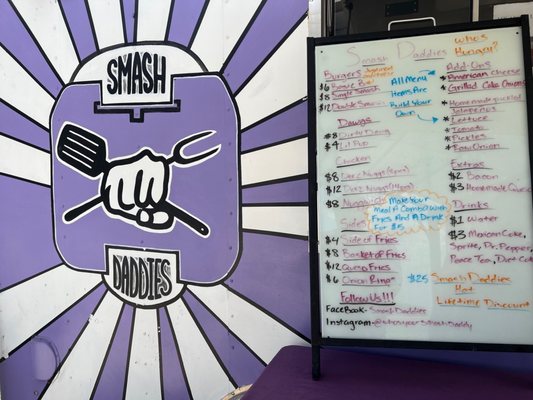 SMASH
DADDIES
Smash Daddies
who's
Hungry?
Burgers
$6
$8 Single Smash
$12 Double Smash
All Menu
Items Are
Build Your
Own
Dawgs
$8 Dirty Dawg
$4 Lil Pup
Chicken
$8 Daez Nuggs
$12 Daez Nuggs
$8
Make your
Meal A Combo With
Fries And A Drink
For $5
Sides
$4 Side of Fries
$8 Basket of Fries
$12 Queso Fries
$6 Onion Rings
Follow Us!!!
FaceBook: Smash Daddies
Instagram:
Add Ons
* American cheese
* Grilled Cabo Onions
* Homemade pickled
Jalapeños
* Lettuce
* Tomato
* Pickles
* Raw Onion
Extras
$2 Bacon
$3 Homemade Queso
Drinks
$1 Water
$3 Mexican Coke,
Sprite, Dr. Pepper,
Peace Tea, Diet Coke
$25 Smash Daddies
Hat
Lifetime Discount